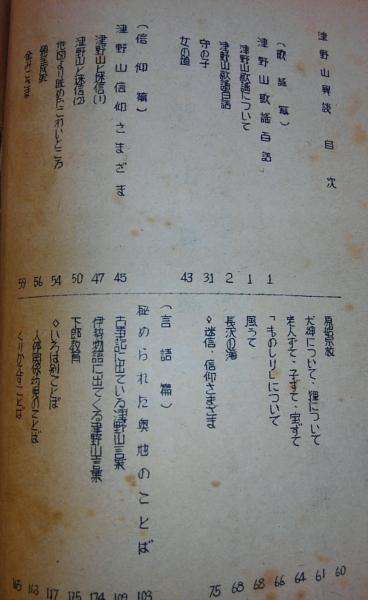 津野山異談 目次
(歌謡篇)
津野山歌謡百話 1
津野山歌謡について 1
津野山歌謡百話 2
守の子 31
女の道 43
(信仰篇)
津野山信仰さまざま 45
津野山と迷信(1) 47
津野山と迷信(2) 50
地図より眺めたこわいところ 54
56
金神さま 59
原始宗教 60
犬神について・狸について 61
老人すて・子すて・宝すて 64
「ものしり」について 66
風うて 68
長沢の滝 68
◇迷信・信仰さまざま 75
(言語篇)
秘められた奥地のことば 103
古事記に出ている津野山言葉 109
伊勢物語に出てくる津野山言葉 174
下郎教育 175
◇いろは別ことば 117
人倫関係均見のことば 163
くりかえすことば 165